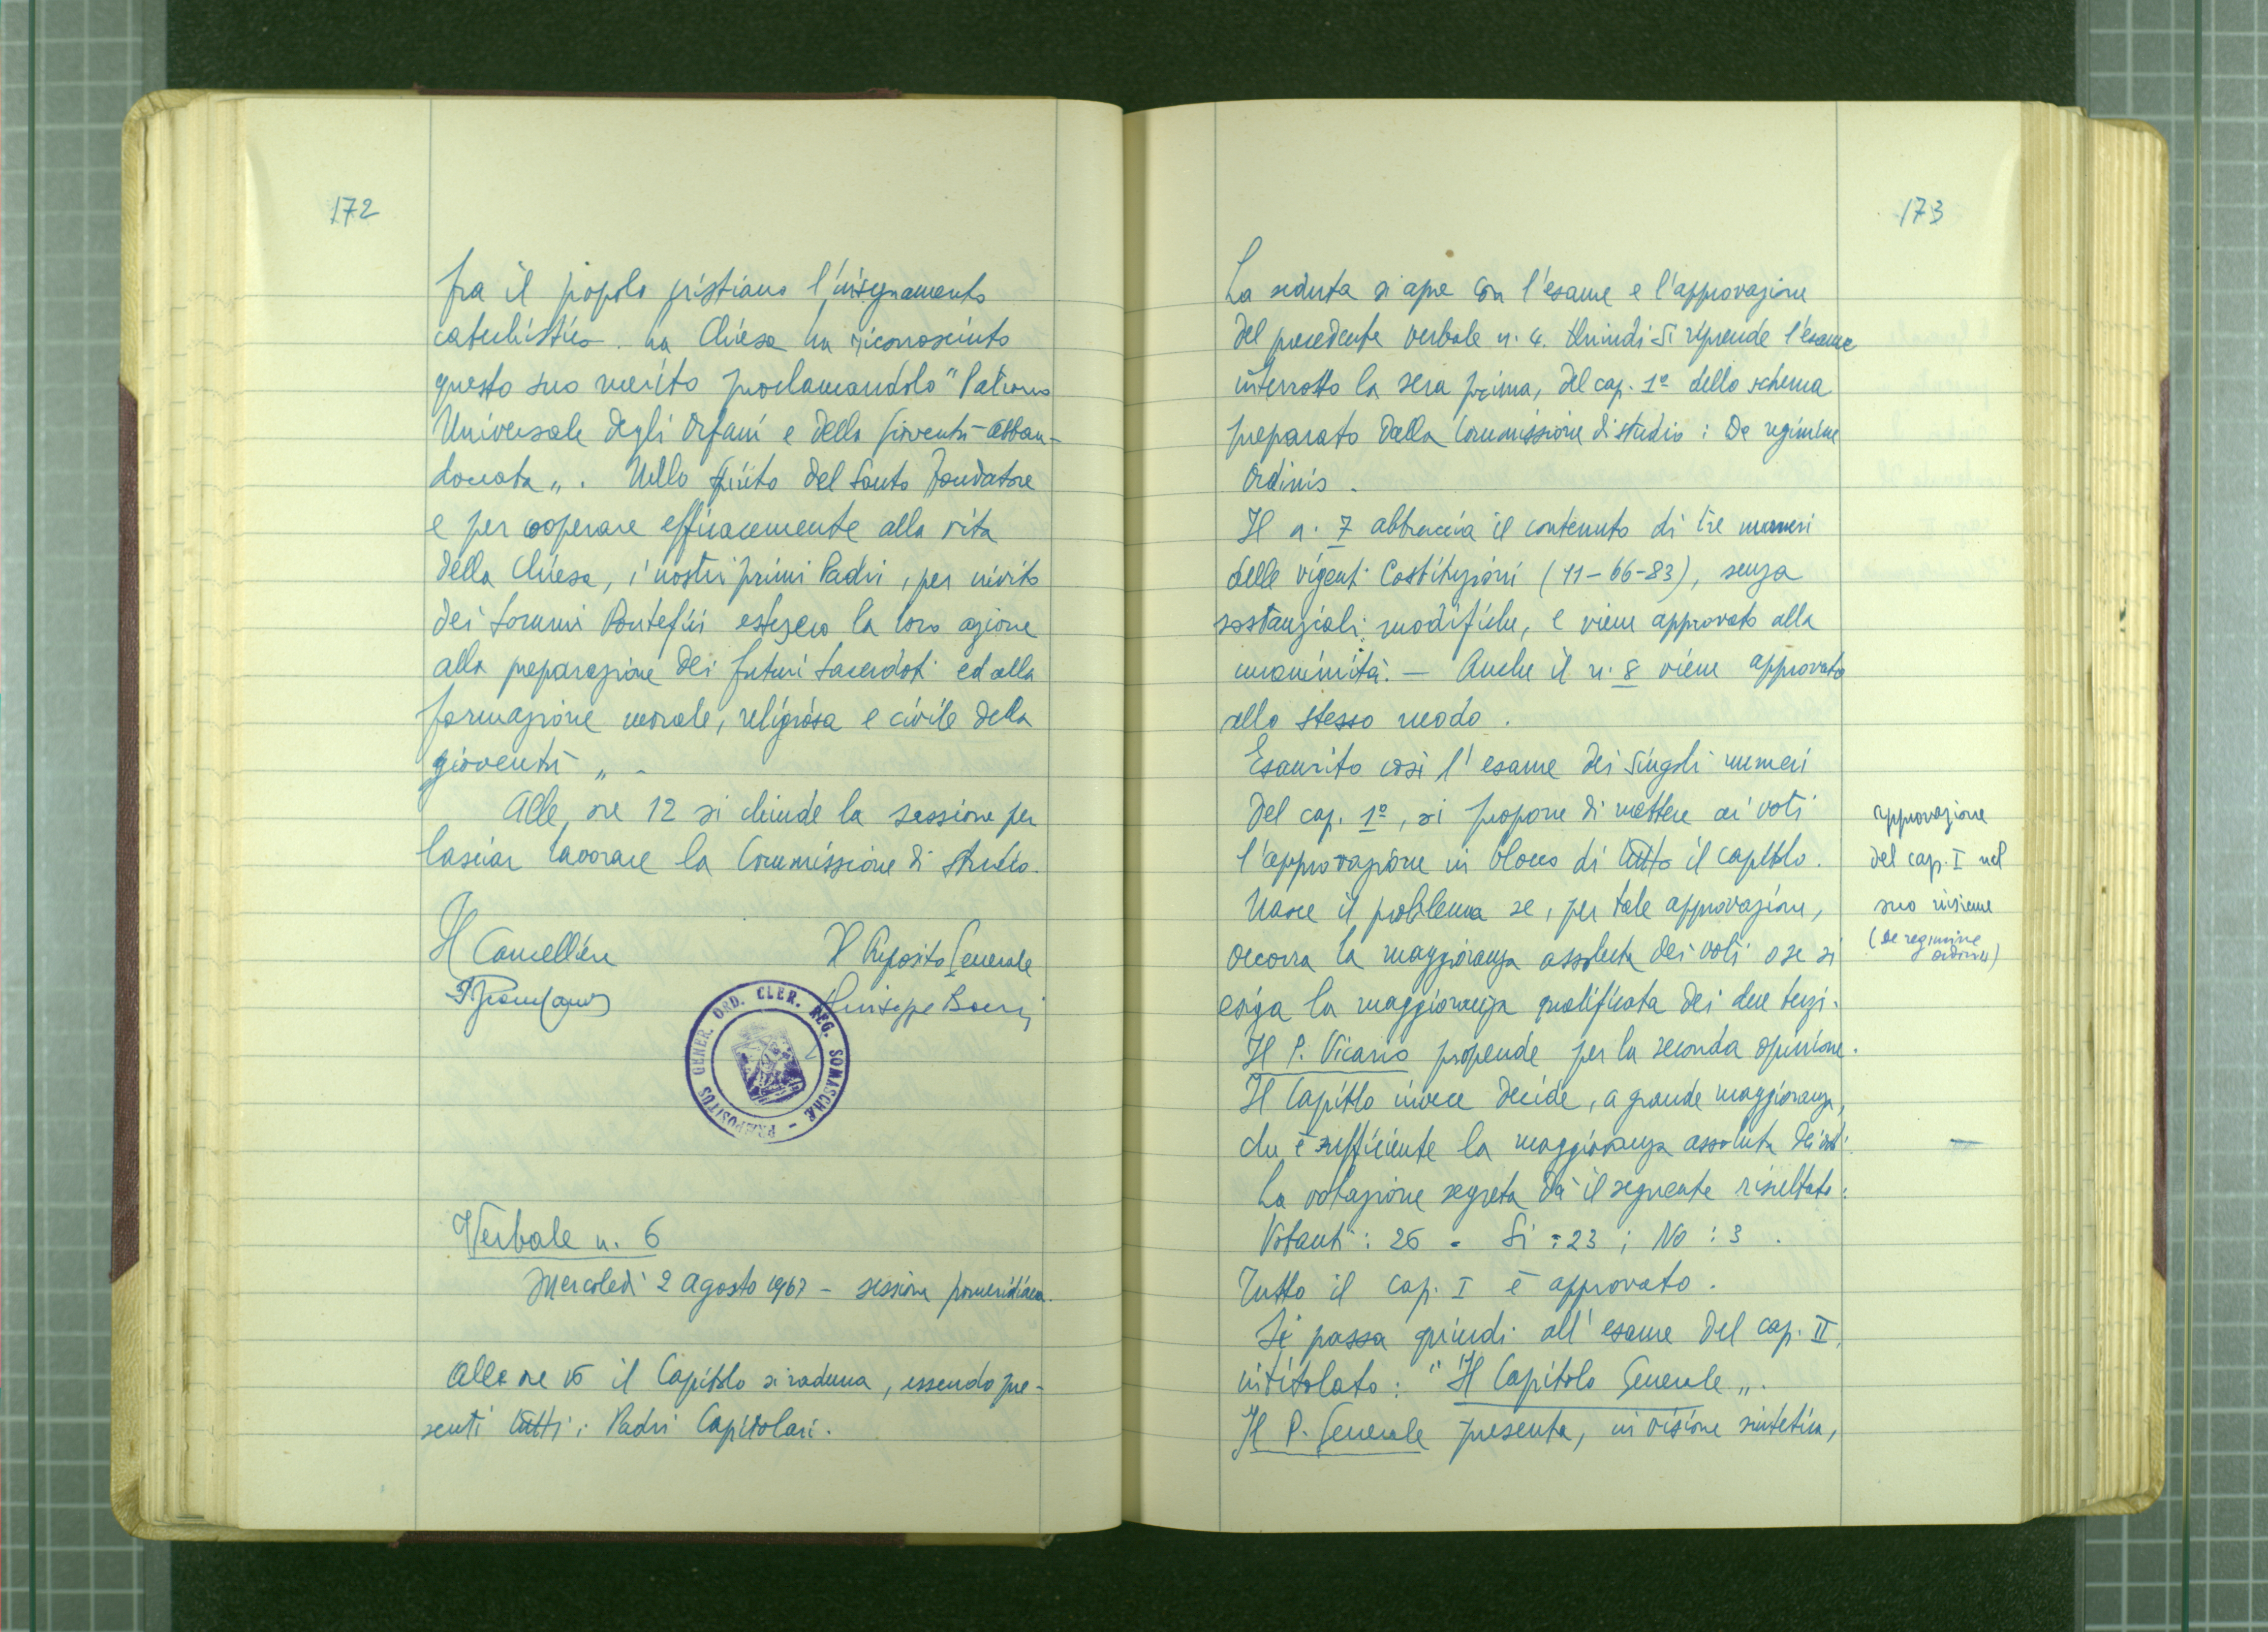 172
fra il popolo cristiano l'insegnamento
catechistico. La Chiesa ha riconosciuto
questo suo merito proclamandolo "Patrono
Universale degli Orfani e della Gioventù abban-
donata„. Nello spirito del Santo Fondatore
e per cooperare efficacemente alla vita
della Chiesa, i nostri primi Padri, per invito
dei Sommi Pontefici estesero la loro azione
alla preparazione dei futuri Sacerdoti ed alla
formazione morale, religiosa e civile della
gioventù„.
Alle ore 12 si chiude la sessione per
lasciar lavorare la Commissione di studio.
Il Cancelliere
Il Preposito Generale
Giuseppe Boeris
PRÆPOSITUS GENER. ORD. CLER. REG. SOMASCHÆ
Verbale n. 6
Mercoledì 2 agosto 1967 - sessione pomeridiana.
Alle ore 16 il Capitolo si raduna, essendo pre-
senti tutti i Padri Capitolari.
173
La seduta si apre con l'esame e l'approvazione
del precedente verbale n. 4. Quindi si riprende l'esame
interrotto la sera prima, del cap. 1º dello schema
preparato dalla Commissione di studio: De regimine
Ordinis.
Il n. 7 abbraccia il contenuto di tre numeri
delle vigenti Costituzioni (11-66-83), senza
sostanziali modifiche, e viene approvato alla
unanimità. - Anche il n. 8 viene approvato
allo stesso modo.
Esaurito così l'esame dei singoli numeri
del cap. 1º, si propone di mettere ai voti
l'approvazione in blocco di tutto il capitolo.
Nasce il problema se, per tale approvazione,
occorra la maggioranza assoluta dei voti o se si
esiga la maggioranza qualificata dei due terzi.
Il P. Vicario propende per la seconda opinione.
Il Capitolo invece decide, a grande maggioranza,
che è sufficiente la maggioranza assoluta dei voti.
La votazione segreta dà il seguente risultato:
Votanti: 26 - Sì: 23; No: 3.
Tutto il cap. I è approvato.
Si passa quindi all'esame del cap. II,
intitolato: "Il Capitolo Generale„.
Il P. Generale presenta, in visione sintetica,
approvazione
del cap. I nel
suo insieme
(De regimine
ordinis)